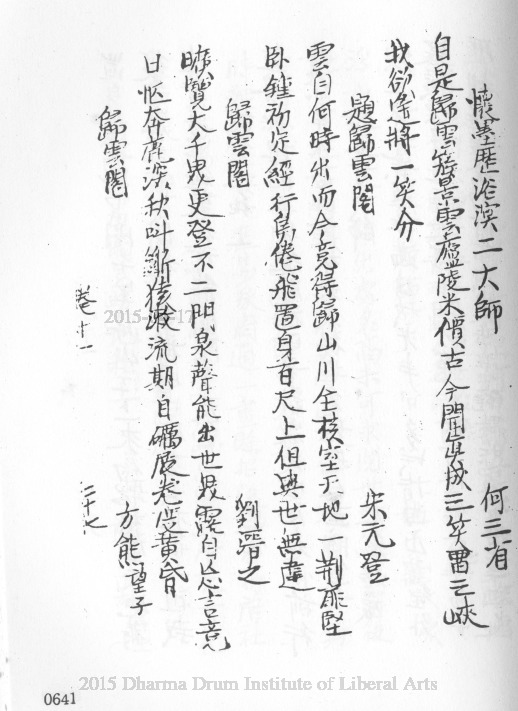 懷歷浴溟二大師 何三省
自是歸雲簇景雲廬陵米價古今聞真成三笑畱三峽
我欲還將一笑分
題歸雲閣 朱元登
雲自何時出而今竟得歸山川全空天地一荆扉堅
臥鐘初定經行鳥倦飛置身百尺上但與世無違
歸雲閣 劉晉之
曠覽大千界更登不二門泉聲能出世露自忘言竟
日奔鹿深秋叫斷猿激流期自礪展卷度黃昏
歸雲閣 方熊望子
卷十一 二十七
2015-17
2015 Dharma Drum Institute of Liberal Arts
0641